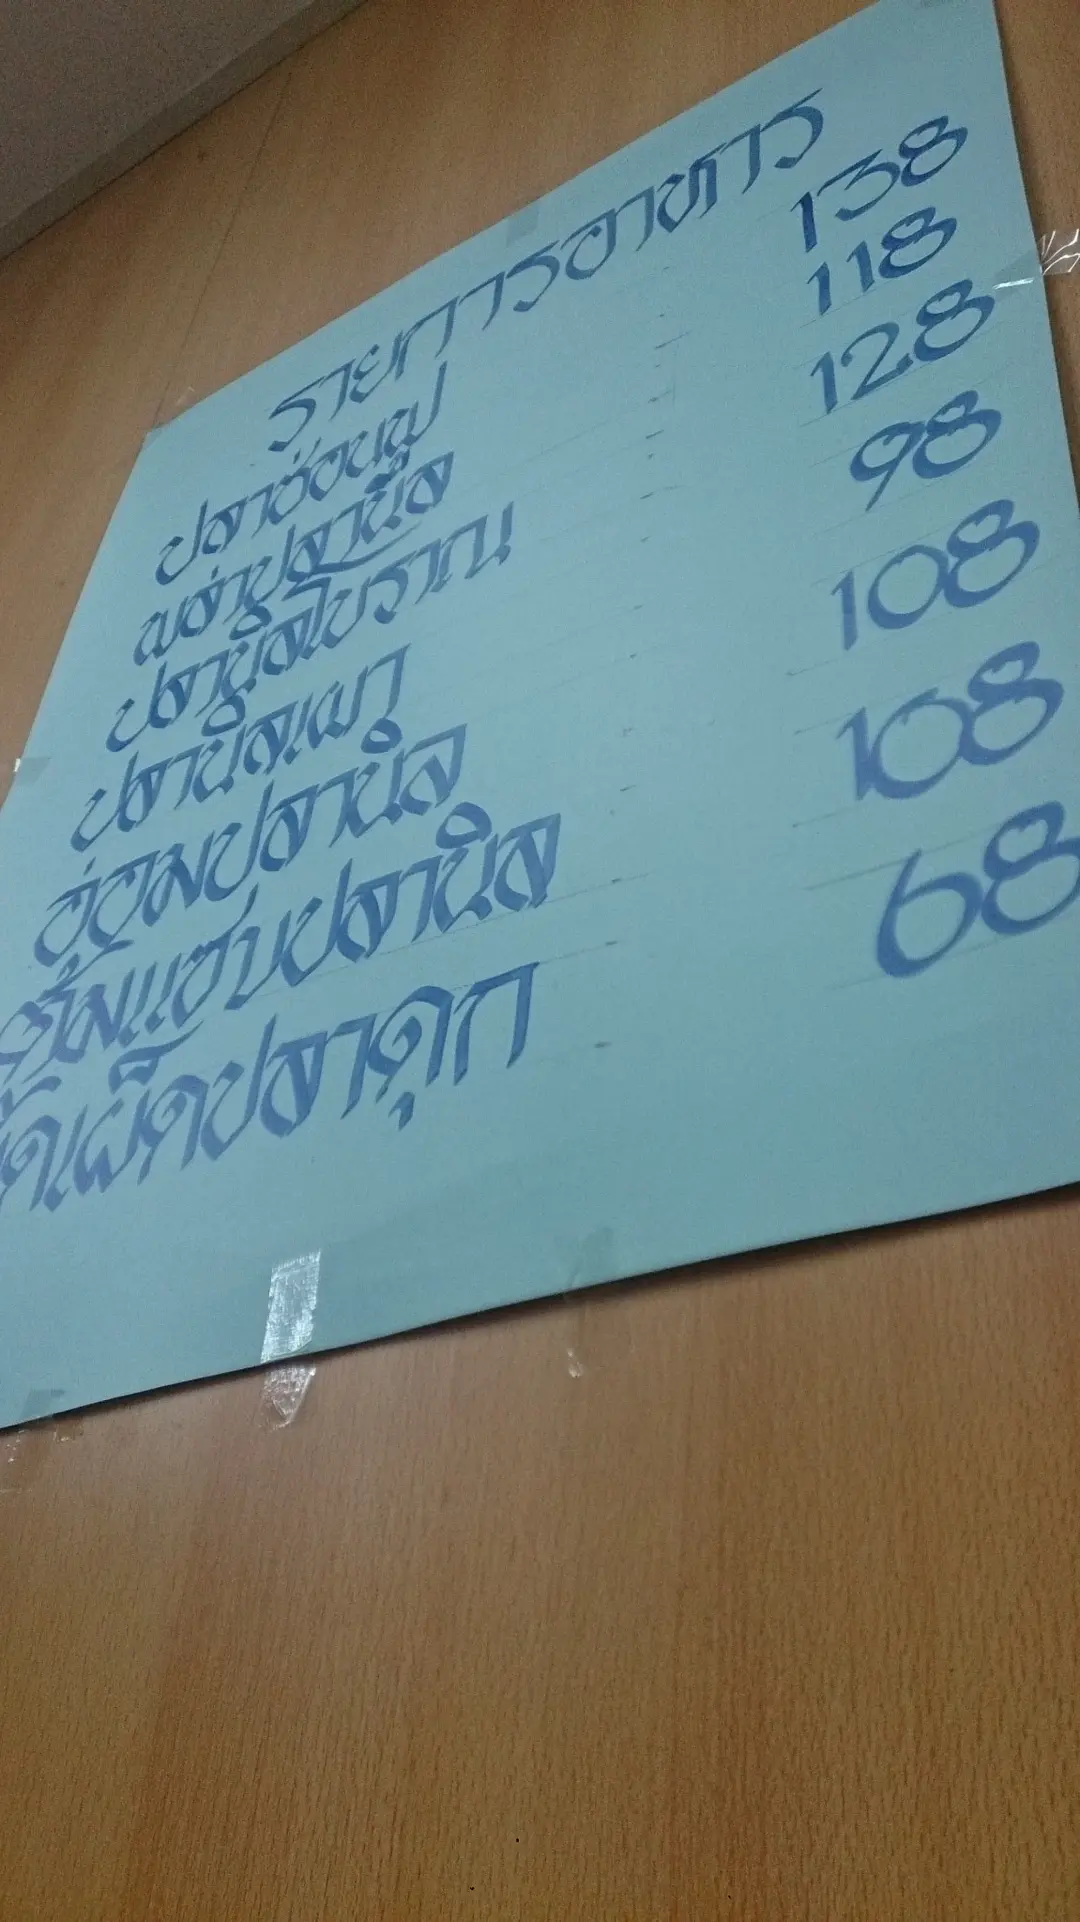 รายการอาหาร
ปลาช่อนนึ่ง 138
พล่าปลานิล 118
ปลานิลโบราณ 128
ปลานิลเผา 98
อ่อมปลานิล 108
ต้มแซ่บปลานิล 108
ผัดเผ็ดปลาดุก 68